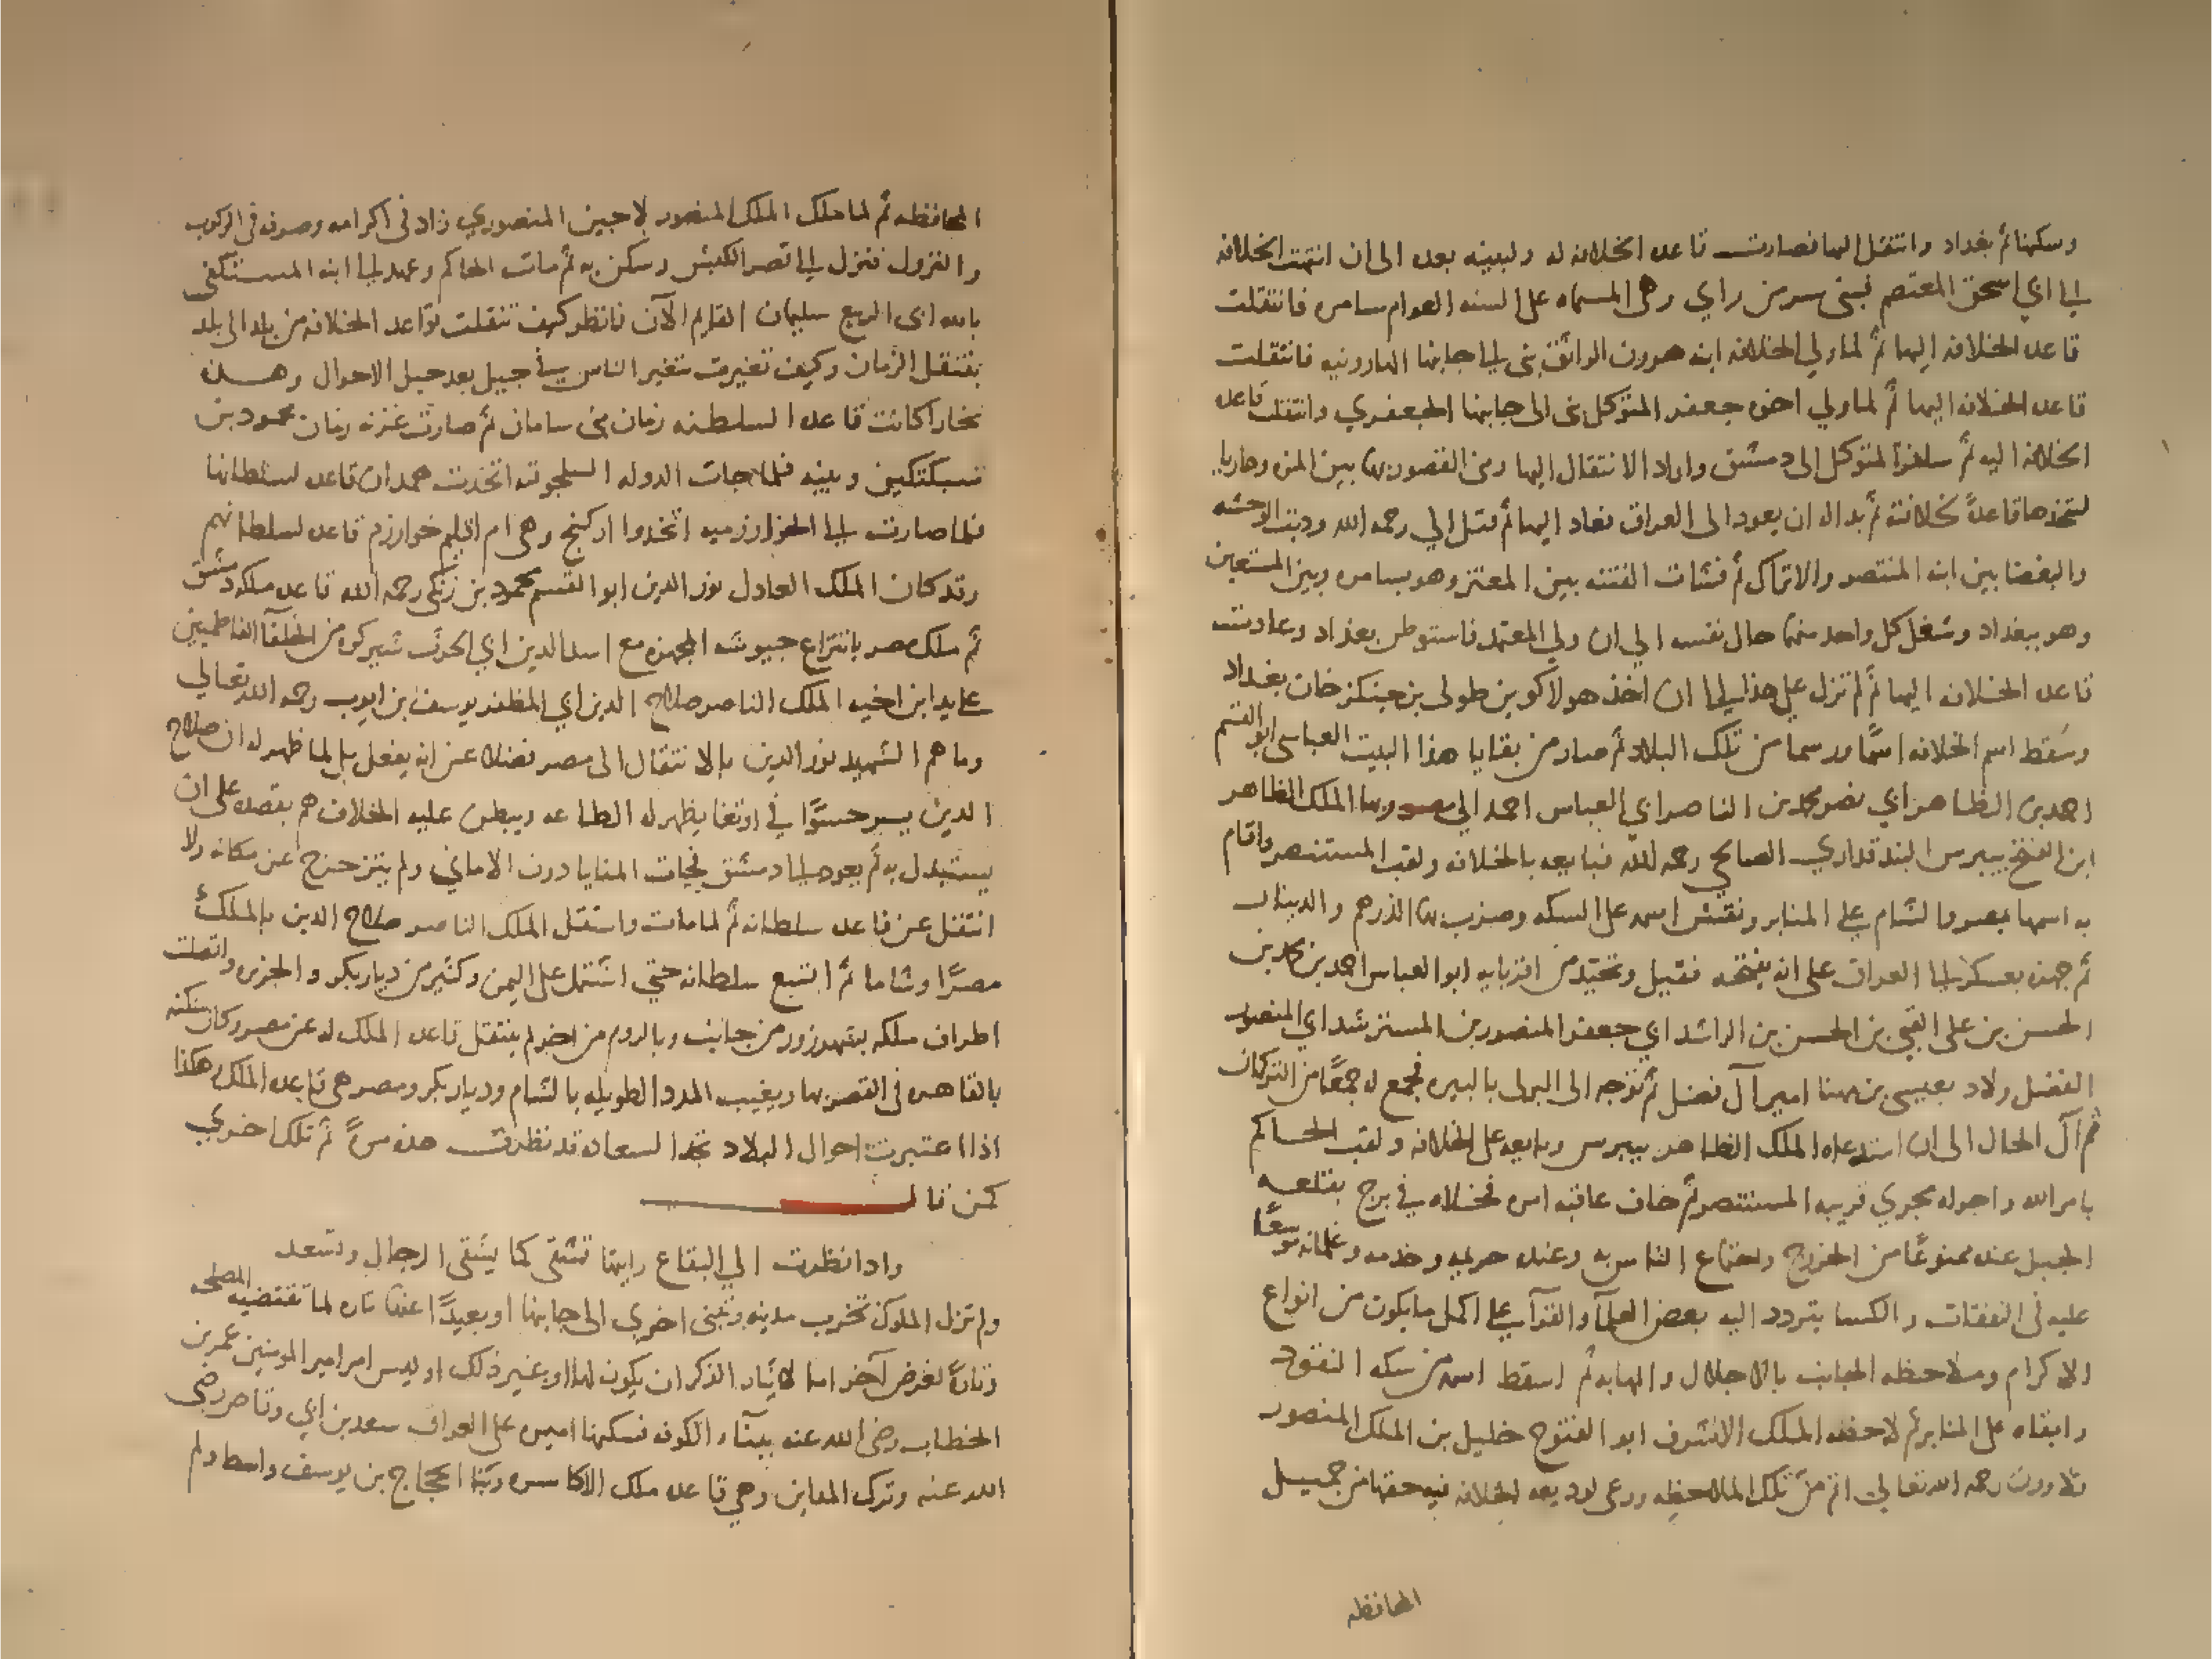 وسكنها ثم بغداد وانتقل اليها فصارت قاعده الخلافه له ولبنيه بعده الى ان انتهت الخلافه
الى ابي اسحق المعتصم فبنى سر من راي وهى المسماه على السنه العوام سامره فانتقلت
قاعده الخلافه اليها ثم لما ولي الخلافه ابنه هرون الواثق بنى الى جانبها الهارونيه فانتقلت
قاعده الخلافه اليها ثم لما ولي اخوه جعفر المتوكل بنى الى جانبها الجعفري وانتقلت قاعده
الخلافه اليه ثم سافر المتوكل الى دمشق واراد الانتقال اليها وبنى القصور بها بين المزه وداريا
ليتخذها قاعدة لخلافته ثم بدا له ان يعود الى العراق فعاد اليها ثم قتل الي رحمه الله ودبت الوحشه
والبغضا بين ابنه المنتصر والاتراك ثم نشات الفتنه بين المعتز وهو بسامره وبين المستعين
وهو ببغداد وشغل كل واحد منهما حال نفسه الي ان ولي المعتمد فاستوطن بغداد وعادت
قاعده الخلافه اليها ثم لم تزل على هذا الى ان اخذ هولاكو بن طولى بن جنكز خان بغداد
وسقط اسم الخلافه اسمًا ورسما من تلك البلاد ثم صار من بقايا هذا البيت العباسى ابو القسم
احمد بن الظاهر ابي نصر محمد بن الناصر ابي العباس احمد الي مصر وبها الملك الظاهر
ابن الفتح بيبرس البندقداري الصالحي رحمه الله فبايعه بالخلافه ولقب المستنصر واقام
به اسمها بمصر والشام على المنابر ونقش اسمه على السكه وضرب بها الدرهم والدينار
ثم جهزه بعسكر الى العراق على انه يفتحه فقتل وتحيد من اقربايه ابو العباس احمد بن محمد بن
الحسن بن على القبي بن الحسن بن الراشد ابي جعفر المنصور بن المسترشد ابي المنصور
الفضل ولاد بعيسى بن مهنا امير آل فضل ثم توجه الى البرلى بالبيره فجمع له جمعًا من التركمان
ثم آل الحال الى ان استدعاه الملك الظاهر بيبرس وبايعه على الخلافه ولقب الحاكم
بامر الله واجراه مجري قريبه المستنصر ثم خاف عاقبه امره فخلاه في برج بقلعه
الجبل عنده ممنوعًا من الخروج واجتماع الناس به وعنده حريمه وخدمه وغلمانه موسعًا
عليه فى النفقات والكسا يتردد اليه بعض العلمآ والقرآ على اكمل ما يكون من انواع
الاكرام وملاحظه الجانب بالاجلال والمهابه ثم اسقط اسمه من سكه النقود
وابقاه على المنابر ثم لاحظه الملك الاشرف ابو الفتوح خليل بن الملك المنصور
قلاوون رحمه الله تعالي اتم من تلك الملاحظه ورعى لوديعه الخلافه فيه حقها من جميل
المحافظه
المحافظه ثم لما ملك الملك المنصور لاجين المنصوري زاد فى اكرامه وصرفه فى الركوب
والنزول فنزل الى قصر الكبش وسكن به ثم مات الحاكم وعهد الى ابنه المستكفى
بالله ابى الربيع سليمان القايم الآن فانظر كيف تنقلت قواعد الخلافه من بلد الى بلد
بتنقل الزمان وكيف تغيرت بتغير الناس في جيل بعد جيل الاحوال وهذه
بخارا كانت قاعده السلطنه زمان بنى سامان ثم صارت غزنه زمان محمود بن
سبكتكين وبنيه فلما جات الدوله السلجوقيه اتخذت همدان قاعده لسلطانها
فلما صارت الى الخوارزميه اتخذوا اركنج وهى ام اقليم خوارزم قاعده لسلطانهم
وقد كان الملك العادل نور الدين ابو القسم محمود بن زنكى رحمه الله قاعده ملكه دمشق
ثم ملك مصر بانتزاع جيوشه المجهزه مع اسد الدين ابي الحرث شيركوه من الخلفآ الفاطميين
على يد ابن اخيه الملك الناصر صلاح الدين ابي المظفر يوسف بن ايوب رحمه الله تعالي
وما هم الشهيد نور الدين بالانتقال الى مصر فضلا عن انه يفعل بل لما ظهر له ان صلاح
الدين يسر حسوًا في ارتغا يظهر له الطاعه ويبطن عليه الخلاف هم بقصده على ان
يستبدل به ثم يعود الى دمشق فجات المنايا دون الاماني ولم يتزحزح عن مكانه ولا
انتقل عن قاعده سلطانه ثم لما مات واستقل الملك الناصر صلاح الدين بالملك
مصرًا وشاما ثم اتسع سلطانه حتي اشتمل على اليمن وكثير من ديار بكر والجزيره واتصلت
اطراف ملكه بشهرزور من جانب وبالروم من اخر لم ينتقل قاعده الملك له عن مصر وكان سكنه
بالقاهره فى القصر بها ويغيب المدد الطويله بالشام وديار بكر ومصر هى قاعده الملك وهكذا
اذا اعتبرت احوال البلاد تجد السعاده قد نظرت هذه مرةً ثم تلك اخري
كمن قال
واذا نظرت الي البقاع رايتها تشقى كما يشقى الرجال وتسعد
ولم تزل الملوك تخرب مدينه وتبنى اخرى الى جانبها او بعيدًا عنها تاره لما تقتضيه المصلحه
وتارةً لغرض آخر اما لايثار الذكر ان يكون لها او بغير ذلك اوليس امر امير المومنين عمر بن
الخطاب رضى الله عنه ببنآء الكوفه فسكنها اميره على العراق سعد بن ابي وقاص رضى
الله عنه وترك المداين وهي قاعده ملك الاكاسره وبنا الحجاج بن يوسف واسط ولم